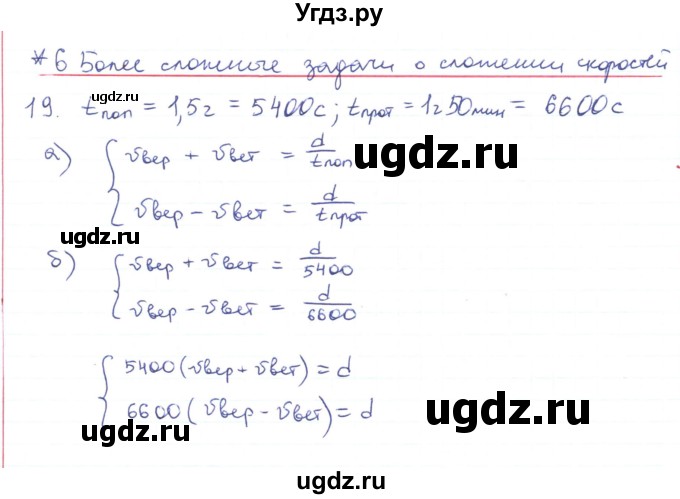 Угдз.ру
*6 Более сложные задачи о сложении скоростей
19. tпоп = 1,5 г = 5400 с ; tпрот = 1г 50 мин = 6600 с
ugdz.ru
а) { vвер + vвет = d/tпоп
ugdz.ru
vвер − vвет = d/tпрот
ugdz.ru
ugdz.ru
б) { vвер + vвет = d/5400
vвер − vвет = d/6600
ugdz.ru
{ 5400 (vвер + vвет) = d
6600 (vвер − vвет) = d
ugdz.ru
ugdz.ru
ugdz.ru